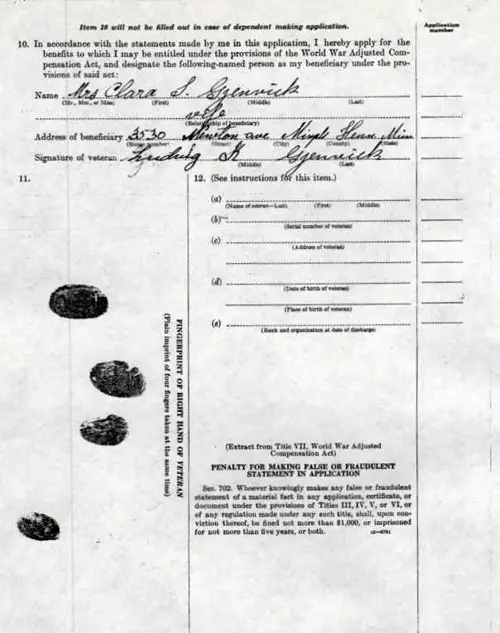 Item 10 will not be filled out in case of dependent making application.
Application number
10. In accordance with the statements made by me in this application, I hereby apply for the
benefits to which I may be entitled under the provisions of the World War Adjusted Com-
pensation Act, and designate the following-named person as my beneficiary under the pro-
visions of said act:
Name Mrs Clara S. Gjenvick
(Mr., Mrs., or Miss) (First) (Middle) (Last)
wife
(Relationship of beneficiary)
Address of beneficiary 3530 Newton ave Minpl Henn. Minn
(House number) (Street) (City) (County) (State)
Signature of veteran Ludvig K Gjenvick
(Middle) (Last)
11.
FINGERPRINT OF RIGHT HAND OF VETERAN
(Plain imprint of four fingers taken at the same time)
12. (See instructions for this item.)
(a)
(Name of veteran—Last) (First) (Middle)
(b)
(Serial number of veteran)
(c)
(Address of veteran)
(d)
(Date of birth of veteran)
(Place of birth of veteran)
(e)
(Rank and organization at date of discharge)
(Extract from Title VII, World War Adjusted
Compensation Act)
PENALTY FOR MAKING FALSE OR FRAUDULENT
STATEMENT IN APPLICATION
Sec. 702. Whoever knowingly makes any false or fraudulent
statement of a material fact in any application, certificate, or
document under the provisions of Titles III, IV, V, or VI, or
of any regulation made under any such title, shall, upon con-
viction thereof, be fined not more than $1,000, or imprisoned
for not more than five years, or both.